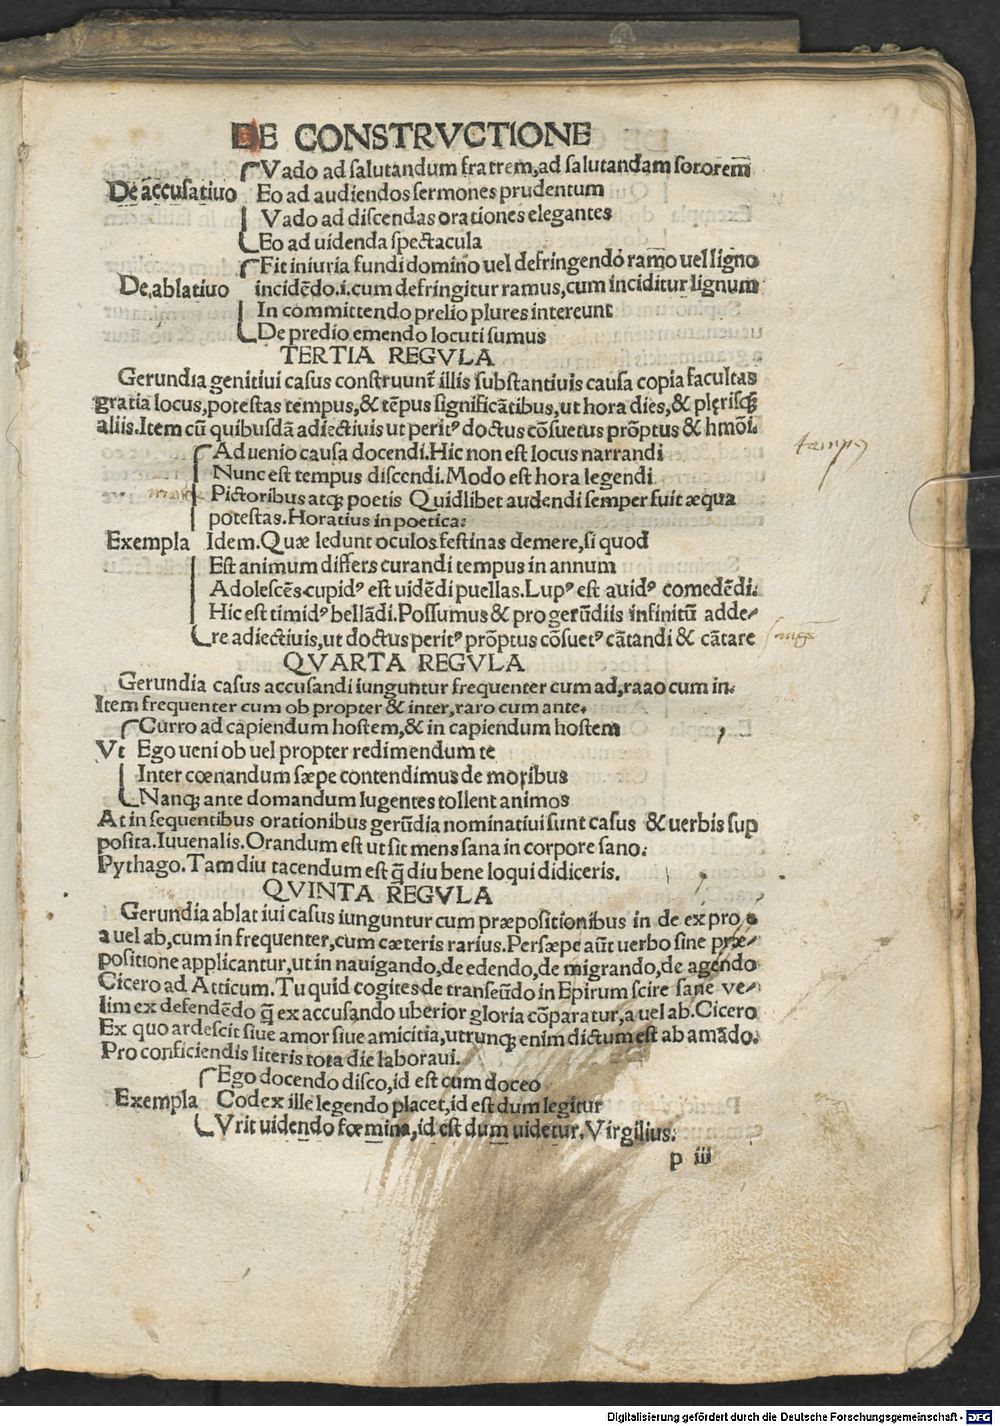 DE CONSTRVCTIONE
Vado ad salutandum fratrem,ad salutandam sororem̄
De accusatiuo Eo ad audiendos sermones prudentum
Vado ad discendas orationes elegantes
Eo ad uidenda spectacula
Fit iniuria fundi domino uel defringendo ramo uel ligno
De.ablatiuo incidēdo.i.cum defringitur ramus,cum inciditur lignum
In committendo prelio plures intereunt
De predio emendo locuti sumus
TERTIA REGVLA
Gerundia genitiui casus construunt̄ illis substantiuis causa copia facultas
gratia locus,potestas tempus,& tēpus significātibus,ut hora dies,& plęrisqꝫ
aliis.Item cū quibusdā adiectiuis ut perit⁹ doctus cōsuetus prōptus & hmōi.
tempus
Aduenio causa docendi.Hic non est locus narrandi
Nunc est tempus discendi.Modo est hora legendi
Pictoribus atqꝫ poetis Quidlibet audendi semper fuit æqua
potestas.Horatius in poetica:
Exempla Idem.Quæ ledunt oculos festinas demere,si quod
Est animum differs curandi tempus in annum
Adolescēs cupid⁹ est uidēdi puellas.Lup⁹ est auid⁹ comedēdi.
Hic est timid⁹ bellādi.Possumus & pro gerūdiis infinitū adde-
re adiectiuis,ut doctus perit⁹ prōptus cōsuet⁹ cātandi & cātare
QVARTA REGVLA
Gerundia casus accusandi iunguntur frequenter cum ad,raao cum in.
Item frequenter cum ob propter & inter,raro cum ante.
Curro ad capiendum hostem,& in capiendum hostem
Vt Ego ueni ob uel propter redimendum te
Inter cœnandum sæpe contendimus de moribus
Nanqꝫ ante domandum lugentes tollent animos
At in sequentibus orationibus gerūdia nominatiui sunt casus & uerbis sup
posita.Iuuenalis.Orandum est ut sit mens sana in corpore sano.
Pythago.Tam diu tacendum est q̄ diu bene loqui didiceris.
QVINTA REGVLA
Gerundia ablatiui casus iunguntur cum præpositionibus in de ex pro e
a uel ab,cum in frequenter,cum cæteris rarius.Persæpe aūt uerbo sine præ-
positione applicantur,ut in nauigando,de edendo,de migrando,de agendo
Cicero ad Atticum.Tu quid cogites de transeūdo in Epirum scire sane ve-
lim ex defendēdo q̄ ex accusando uberior gloria cōparatur,a uel ab.Cicero
Ex quo ardescit siue amor siue amicitia,utrunqꝫ enim dictum est ab amādo.
Pro conficiendis literis tota die laboraui.
Ego docendo disco,id est cum doceo
Exempla Codex ille legendo placet,id est dum legitur
Vrit uidendo fœmina,id est dum uidetur.Virgilius.
p iii
Digitalisierung gefördert durch die Deutsche Forschungsgemeinschaft - DFG